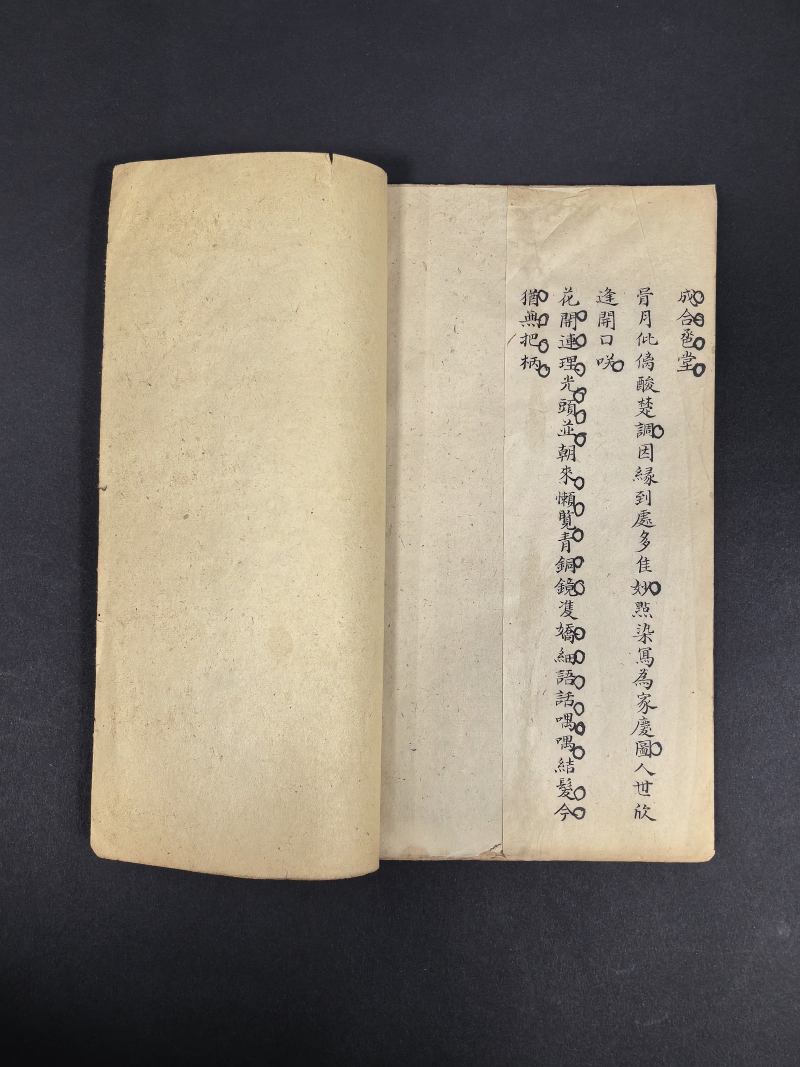 成合卺堂
骨月仳僪酸楚調因緣到處多佳妙㸃染冩為家慶圖人世欣
逢開口咲
花開連理光頭並朝來懶覽青銅鏡㕠嬌細語話喁喁結髮今
猶無把柄